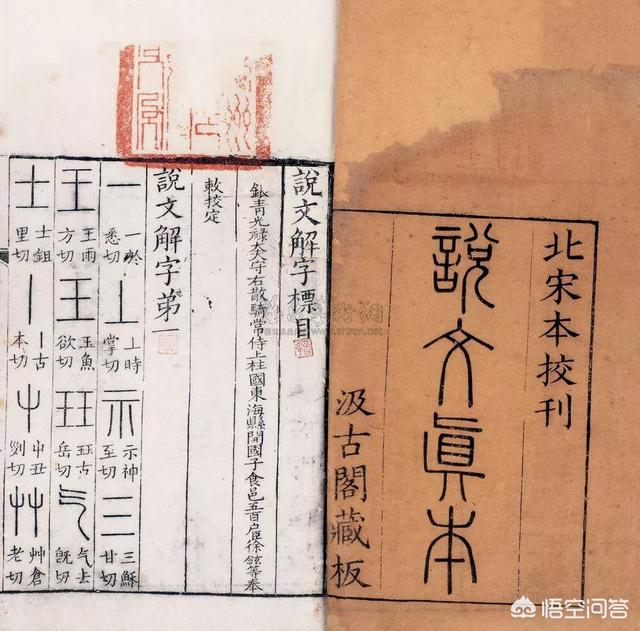 北宋本挍刊
說文眞本
汲古閣藏板
說文解字標目
銀青光祿大夫守右散騎常侍上柱國東海縣開國子食邑五百户臣徐鉉等奉
敕挍定
說文解字第一
一 一於悉切 丄 丄時掌切 示 示神至切 三 三穌甘切
王 王雨方切 王 玉魚欲切 玨 玨古岳切 气 气去旣切
士 士鉏里切 丨 丨古本切 屮 屮丑列切 艸 艸倉老切
悟空问答